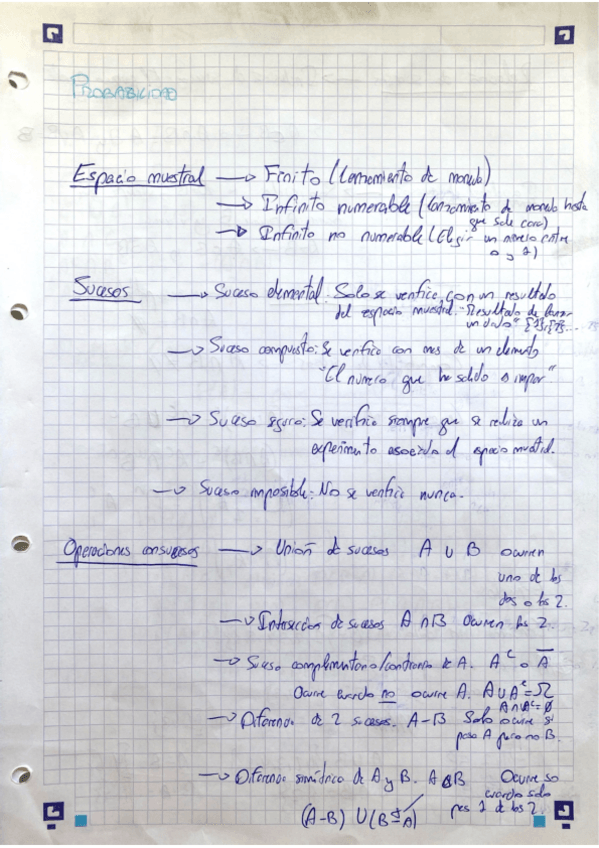 PROBABILIDAD
Espacio muestral → Finito (lanzamiento de moneda)
→ Infinito numerable (lanzamiento de moneda hasta
que sale cara)
→ Infinito no numerable (Elegir un numero entre
0 y 1)
Sucesos → Suceso elemental. Solo se verifica con un resultado
del espacio muestral. "Resultado de lanzar
un dado"
→ Suceso compuesto: Se verifica con mas de un elemento
"El numero que ha salido es impar"
→ Suceso seguro: Se verifica siempre que se realiza un
experimento asociado al espacio muestral.
→ Suceso imposible: No se verifica nunca.
Operaciones con sucesos → Unión de sucesos A ∪ B ocurren
uno de los
dos o los 2.
→ Intersección de sucesos A ∩ B Ocurren los 2.
→ Suceso complementario/contrario de A. Aᶜ o A̅
Ocurre cuando no ocurre A. A∪Aᶜ=Ω
A∩Aᶜ=∅
→ Diferencia de 2 sucesos. A-B Solo ocurre si
pasa A pero no B.
→ Diferencia simétrica de A y B. Ocurre
cuando solo
pasa 1 de los 2.
(A-B) ∪ (B-A)